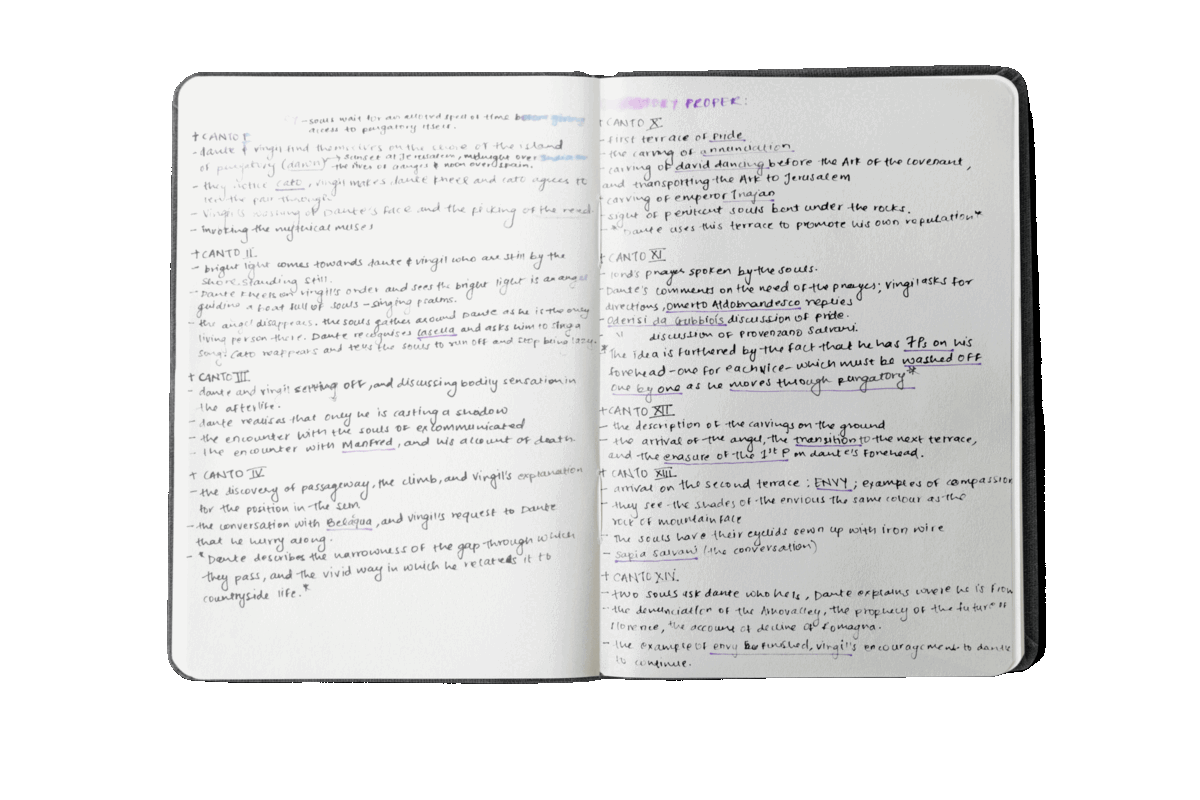 - souls wait for an allotted spell of time before giving
access to purgatory itself.
+ CANTO I
- dante & virgil find themselves on the shore of the island
of purgatory (dawn) → sunset at Jerusalem, midnight over
the river of Ganges & noon over spain.
- they notice cato, virgil makes dante kneel and cato agrees to
let the pair through.
- Virgil's washing of Dante's face and the picking of the reed.
- invoking the mythical muses
+ CANTO II
- bright light comes towards dante & virgil who are still by the
shore, standing still.
- Dante kneels on virgil's order and sees the bright light is an angel
guiding a boat full of souls - singing psalms.
- the angel disappears. the souls gather around Dante as he is the only
living person there. Dante recognises casella and asks him to sing a
song. Cato reappears and tells the souls to run off and stop being lazy.
+ CANTO III
- dante and virgil setting off, and discussing bodily sensation in
the afterlife.
- dante realises that only he is casting a shadow
- the encounter with the souls of excommunicated
- the encounter with Manfred, and his account of death.
+ CANTO IV
- the discovery of passageway, the climb, and virgil's explanation
for the position in the sun
- the conversation with Belaqua, and virgil's request to Dante
that he hurry along.
- *Dante describes the narrowness of the gap through which
they pass, and the vivid way in which he relates it to
countryside life.*
PROPER:
+ CANTO X
- first terrace of pride
- the carving of annunciation.
- carving of david dancing before the Ark of the covenant,
and transporting the Ark to Jerusalem
- carving of emperor Trajan
- sight of penitent souls bent under the rocks.
- *Dante uses this terrace to promote his own reputation*
+ CANTO XI
- lord's prayer spoken by the souls.
- Dante's comments on the need of the prayer; Virgil asks for
directions, Omerto Aldobrandesco replies
- Oderisi da Gubbio's discussion of pride.
- " discussion of Provenzano Salvani.
*The idea is furthered by the fact that he has 7Ps on his
forehead - one for each vice - which must be washed off
one by one as he moves through purgatory*
+ CANTO XII
- the description of the carvings on the ground
- the arrival of the angel, the transition to the next terrace,
and the erasure of the 1st P on dante's forehead.
+ CANTO XIII
- arrival on the second terrace: ENVY; examples of compassion
- they see the shades of the envious the same colour as the
rock of mountain face
- The souls have their eyelids sewn up with iron wire
- Sapia Salvani (the conversation)
+ CANTO XIV.
- two souls ask dante who he is, Dante explains where he is from
- the denunciation of the Arno valley, the prophecy of the future of
florence, the account of decline of Romagna.
- the example of envy be finished, virgil's encouragement to dante
to continue.